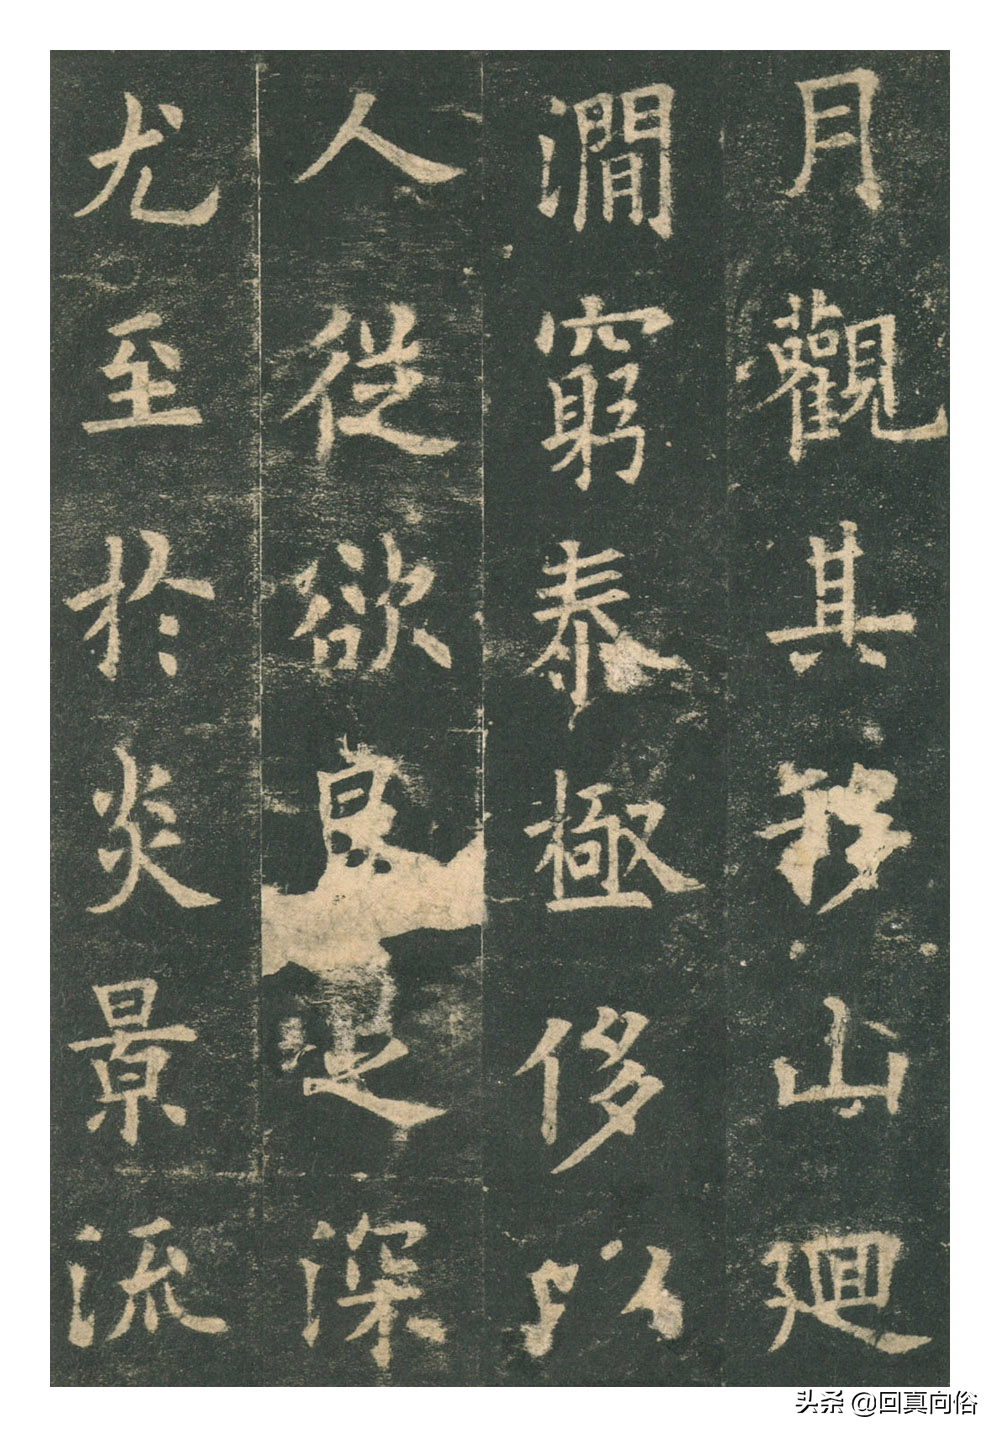 月觀其移山迴
澗窮泰極侈以
人從欲良足深
尤至於炎景流
头条 @回真向俗